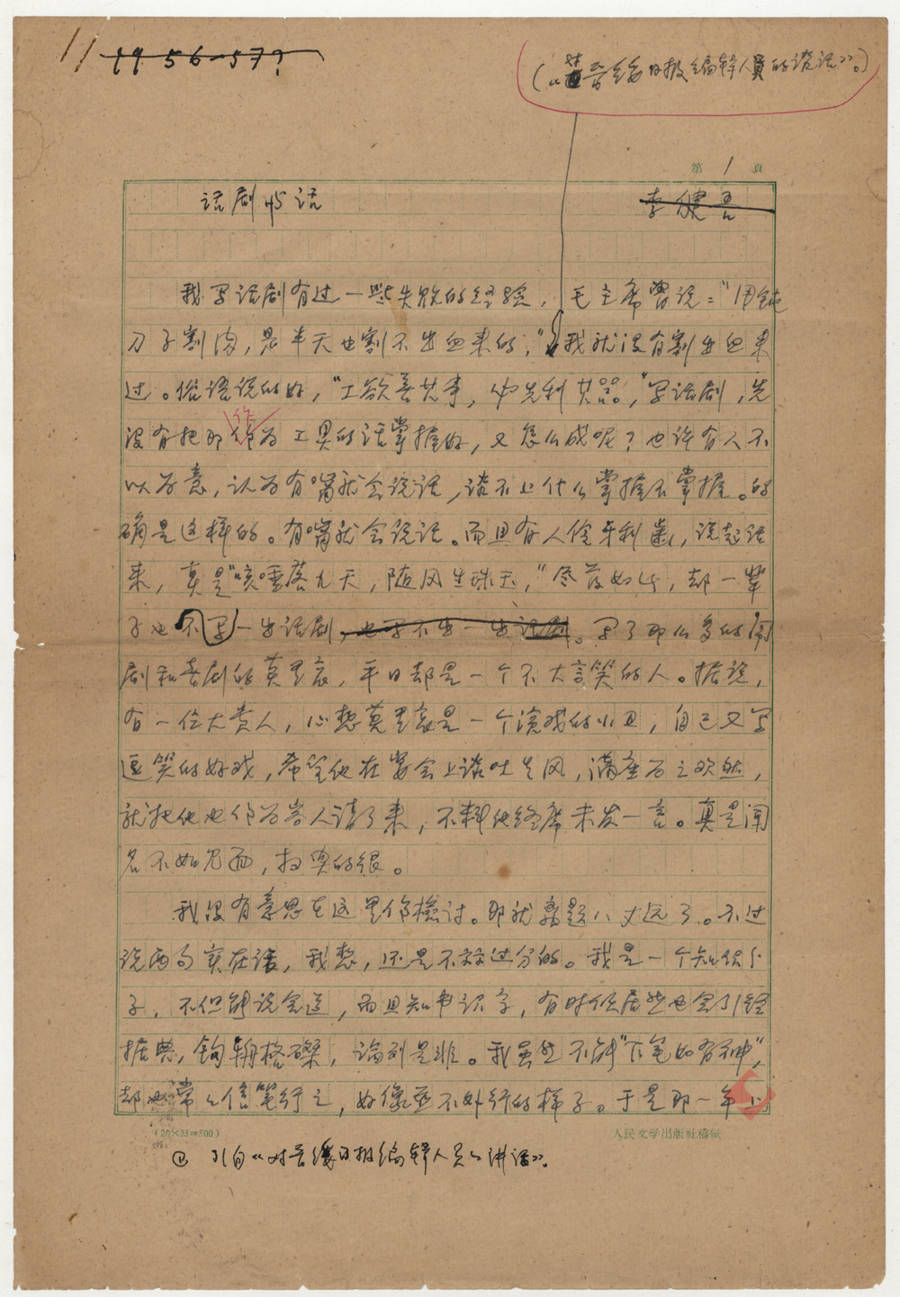 11 1956-57?
(“对晋绥日报编辑人员的谈话”。)
第 1 頁
话剧的话
李健吾
我写话剧有过一些失败的经验，毛主席曾说：“用钝
刀子割肉，是半天也割不出血来的，”我就没有割出血来
过。俗语说的好，“工欲善其事，必先利其器。”写话剧，先
作
没有把那作为工具的话掌握好，又怎么成呢？也许有人不
以为意，认为有嘴就会说话，谈不上什么掌握不掌握。的
确是这样的。有嘴就会说话。而且有人伶牙利齿，说起话
来，真是“咳唾落九天，随风生珠玉，”尽管如此，却一辈
子也不写一出话剧，也写不出一出话剧。写了那么多的闹
剧和喜剧的莫里哀，平日却是一个不大言笑的人。据说，
有一位大贵人，心想莫里哀是一个演戏的小丑，自己又写
逗笑的好戏，希望他在宴会上谈吐生风，满座为之欢然，
就把他也作为客人请了来，不料他终席未发一言。真是闻
名不如见面，扫兴的很。
我没有意思在这里作检讨。那就离题八丈远了。不过
说两句实在话，我想，还是不算过分的。我是一个知识分
子，不但能说会道，而且知书识字，有时候居然也会引经
据典，钩辀格磔，论列是非。我虽然不能“下笔如有神”，
却也常常信笔行之，好像并不外行的样子。于是那一年八
(20×25=500)
人民文学出版社稿纸
① 引自“对晋绥日报编辑人员的讲话”。